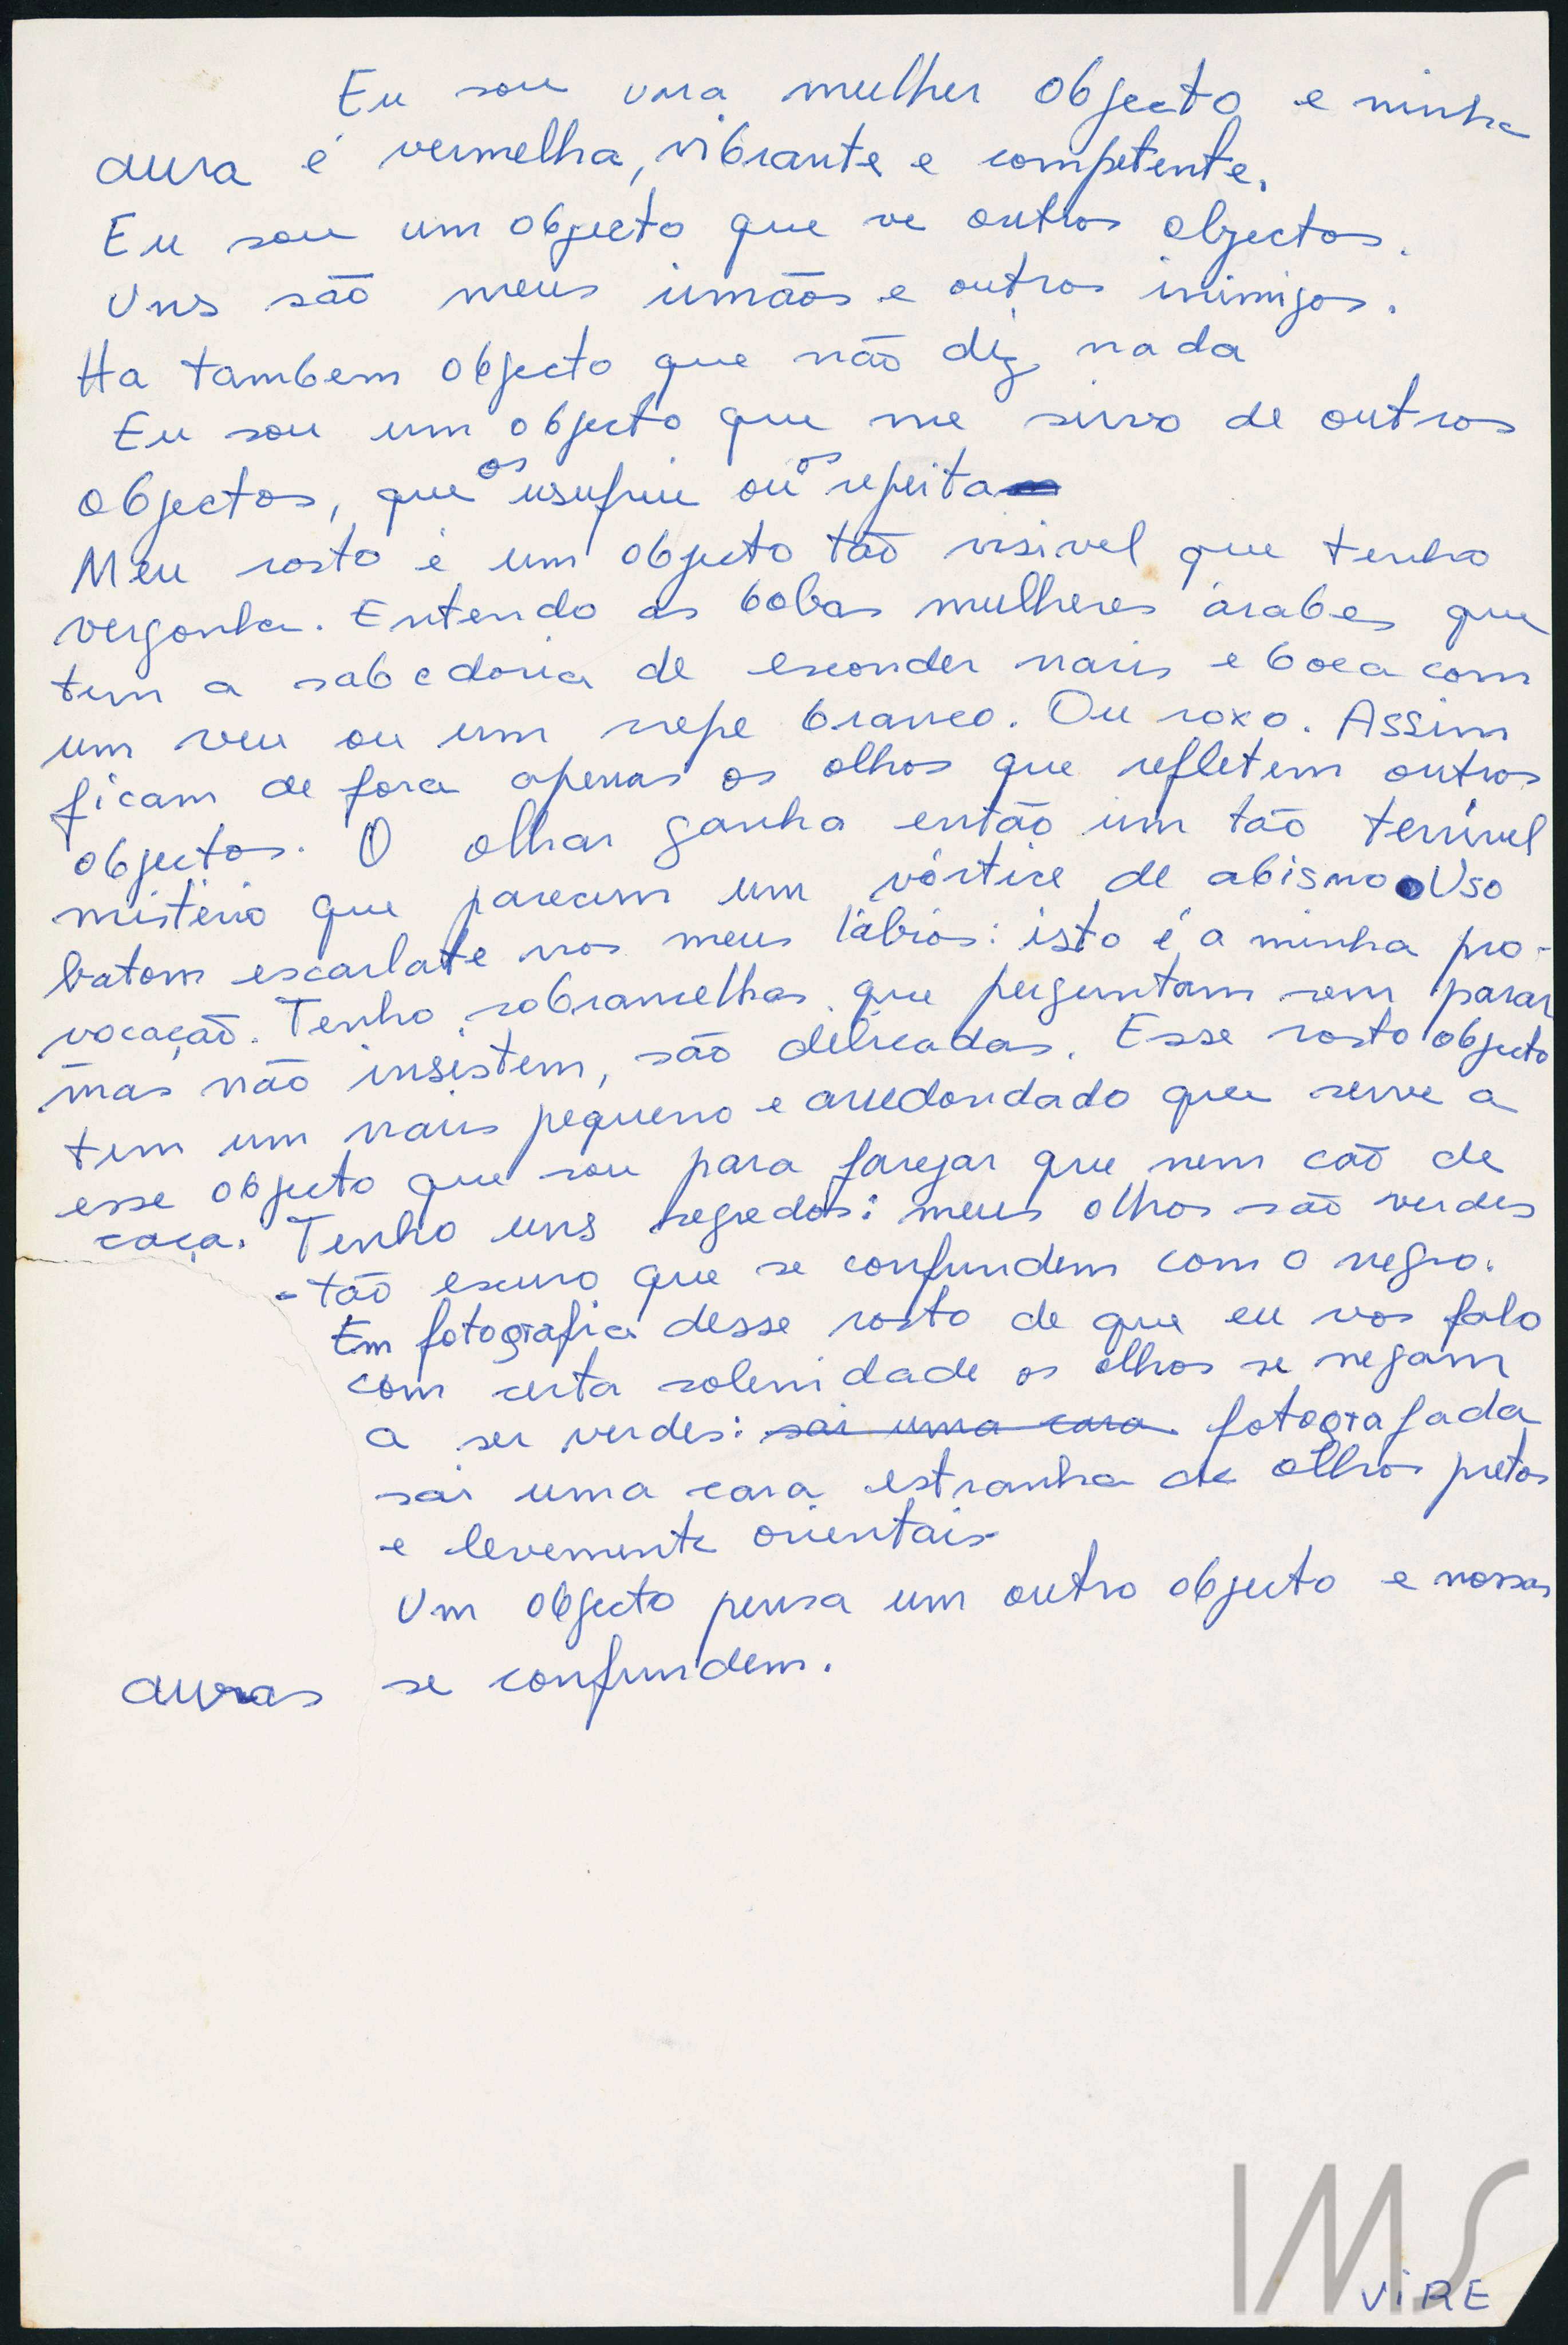 Eu sou uma mulher objecto e minha
aura é vermelha, vibrante e competente.
Eu sou um objecto que ve outros objectos.
Uns são meus irmãos e outros inimigos.
Ha tambem objecto que não diz nada
Eu sou um objecto que me sirvo de outros
objectos, que os usufrui ou os rejeita
Meu rosto é um objecto tão visivel que tenho
vergonha. Entendo as bobas mulheres árabes que
tem a sabedoria de esconder nariz e boca com
um veu ou um crepe branco. Ou roxo. Assim
ficam de fora apenas os olhos que refletem outros
objectos. O olhar ganha então um tão terrível
mistério que parecem um vórtice de abismo. Uso
batom escarlate nos meus lábios: isto é a minha pro-
vocação. Tenho sobrancelhas que perguntam sem parar
mas não insistem, são delicadas. Esse rosto objecto
tem um nariz pequeno e arredondado que serve a
esse objecto que sou para farejar que nem cão de
caça. Tenho uns segredos: meus olhos são verdes
- tão escuro que se confundem com o negro.
Em fotografia desse rosto de que eu vos falo
com certa solenidade os olhos se negam
a ser verdes: sai uma cara fotografada
sai uma cara estranha de olhos pretos
e levemente orientais
Um objecto pensa um outro objecto e nossas
auras se confundem.
IMS
ViRE